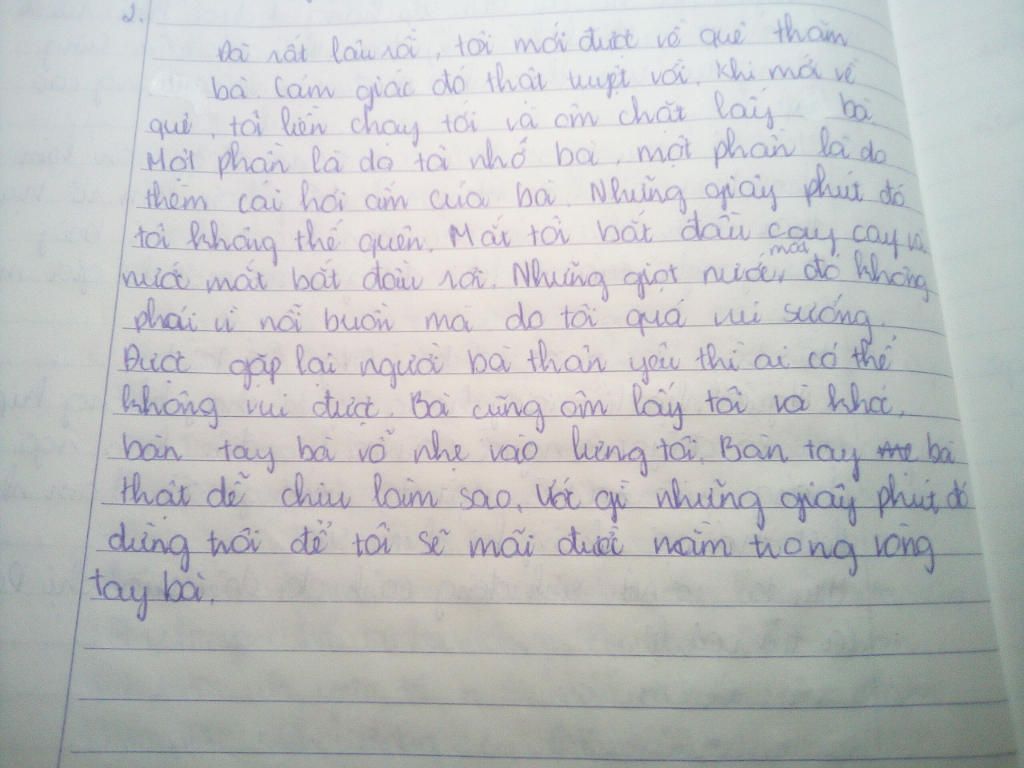 2.
Đã rất lâu rồi, tôi mới được về quê thăm
bà. Cảm giác đó thật tuyệt vời. Khi mới về
quê, tôi liền chạy tới và ôm chặt lấy bà
Một phần là do tôi nhớ bà, một phần là do
thèm cái hơi ấm của bà. Những giây phút đó
tôi không thể quên. Mắt tôi bắt đầu cay cay và
nước mắt bắt đầu rơi. Những giọt nước mắt đó không
phải vì nỗi buồn mà do tôi quá vui sướng.
Được gặp lại người bà thân yêu thì ai có thể
không vui được. Bà cũng ôm lấy tôi và khóc,
bàn tay bà vỗ nhẹ vào lưng tôi. Bàn tay bà
thật dễ chịu làm sao. Ước gì những giây phút đó
dừng trôi để tôi sẽ mãi được nằm trong vòng
tay bà.